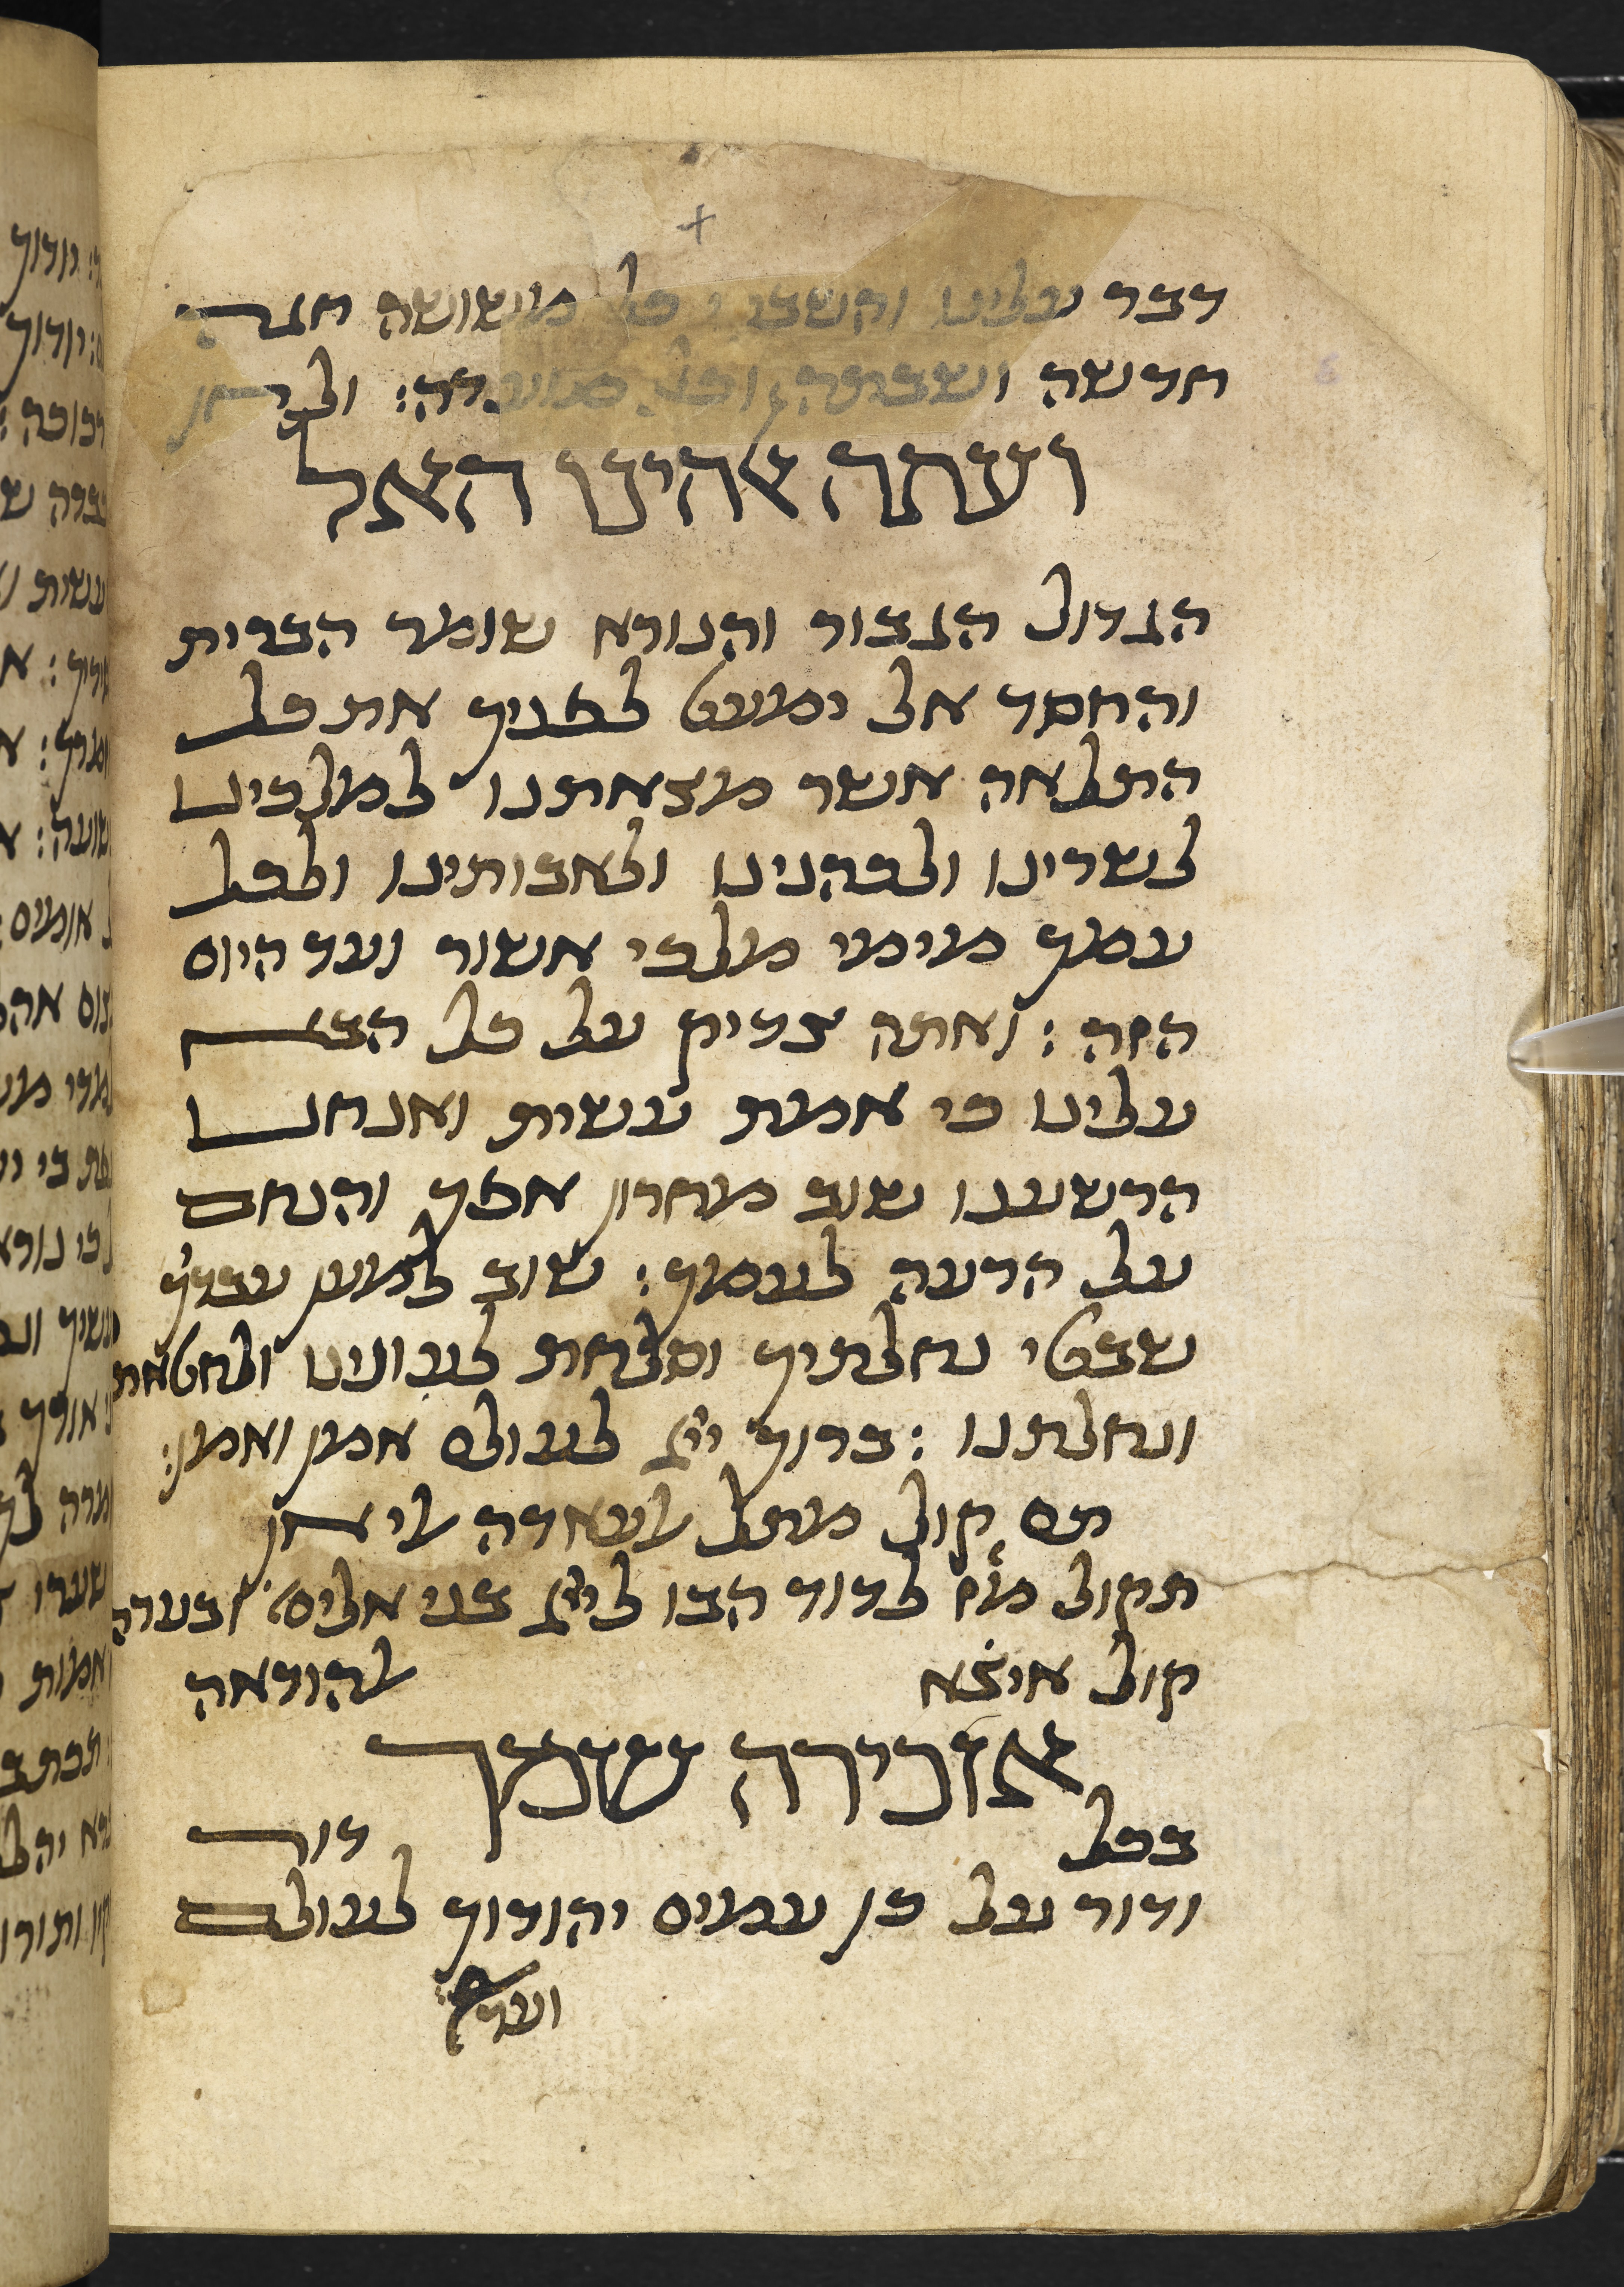 דבר עלינו והשבתי כל משושה חגה
חדשה ושבתה וכל מועדה:
ועתה אלהינו האל
הגדול הגבור והנורא שומר הברית
והחסד אל ימעט לפניך את כל
התלאה אשר מצאתנו למלכינו
לשרינו ולכהנינו ולאבותינו ולכל
עמך מימי מלכי אשור ועד היום
הזה : ואתה צדיק על כל הבא
עלינו כי אמת עשית ואנחנו
הרשענו שוב מחרון אפך והנחם
על הרעה לעמך: שוב למען עבדיך
שבטי נחלתיך וסלחת לעונינו ולחטאת
ונחלתנו : ברוך ייי לעולם אמן ואמן:
תם קול מתל לעאדה
תקול מזמ לדוד הבו לייי בני אלים ובעדה
קול איצׄא להודאה
אזכירה שמך
בכל דור
ודור על כן עמים יהודוך לעולם
ועד